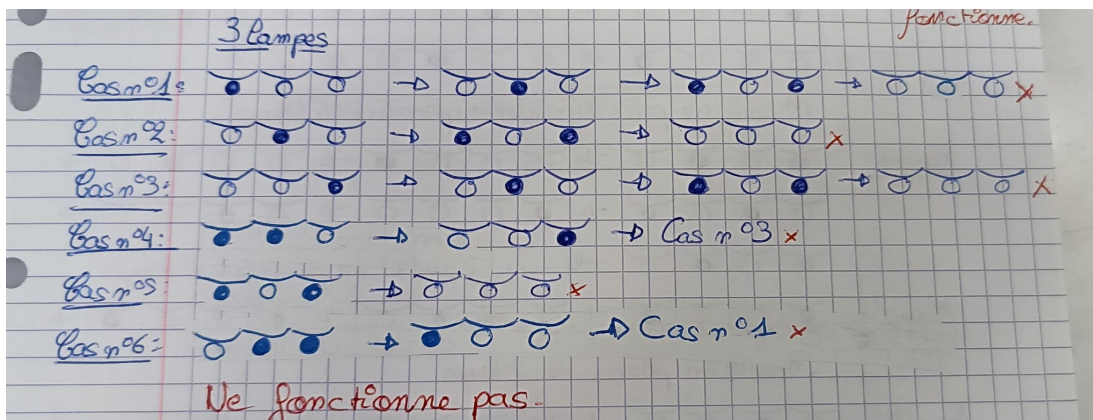 fonctionne.
3 lampes
Cas n°1:
Cas n°2:
Cas n°3:
Cas n°4: Cas n°3
Cas n°5:
Cas n°6: Cas n°1
Ne fonctionne pas.